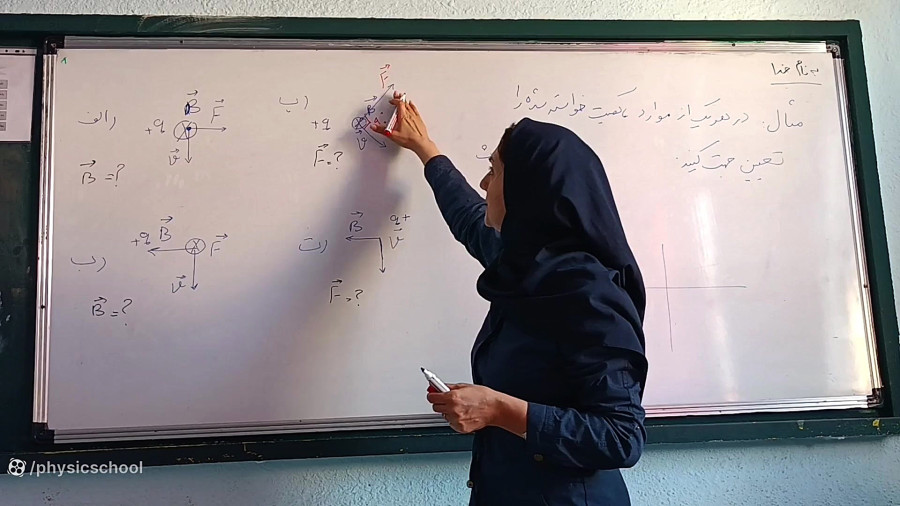 به نام خدا
مثال. در هر یک از موارد کمیت خواسته شده را
تعیین جهت کنید.
ب)
F⃗
B⃗
+q
v⃗
F⃗=?
الف)
B⃗
+q
F⃗
v⃗
B⃗=?
ت)
B⃗
q+
v⃗
F⃗=?
پ)
+q
B⃗
F⃗
v⃗
B⃗=?
/physicschool